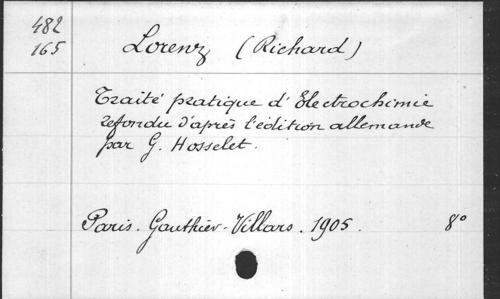 482
165
Lorenz (Richard)
Traité pratique d'Electrochimie
refondu d'après l'édition allemande
par G. Hosselet.
Paris. Gauthier-Villars. 1905. 8°